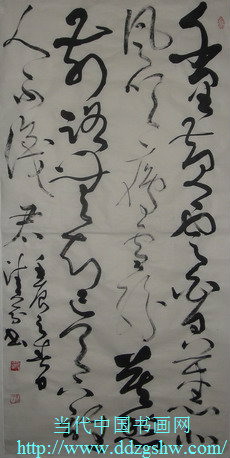 千里黄云白日曛北
风吹雁雪纷纷莫愁
前路无知己天下谁
人不识君
壬辰之春月
当代中国书画网
http://www.ddzgshw.com